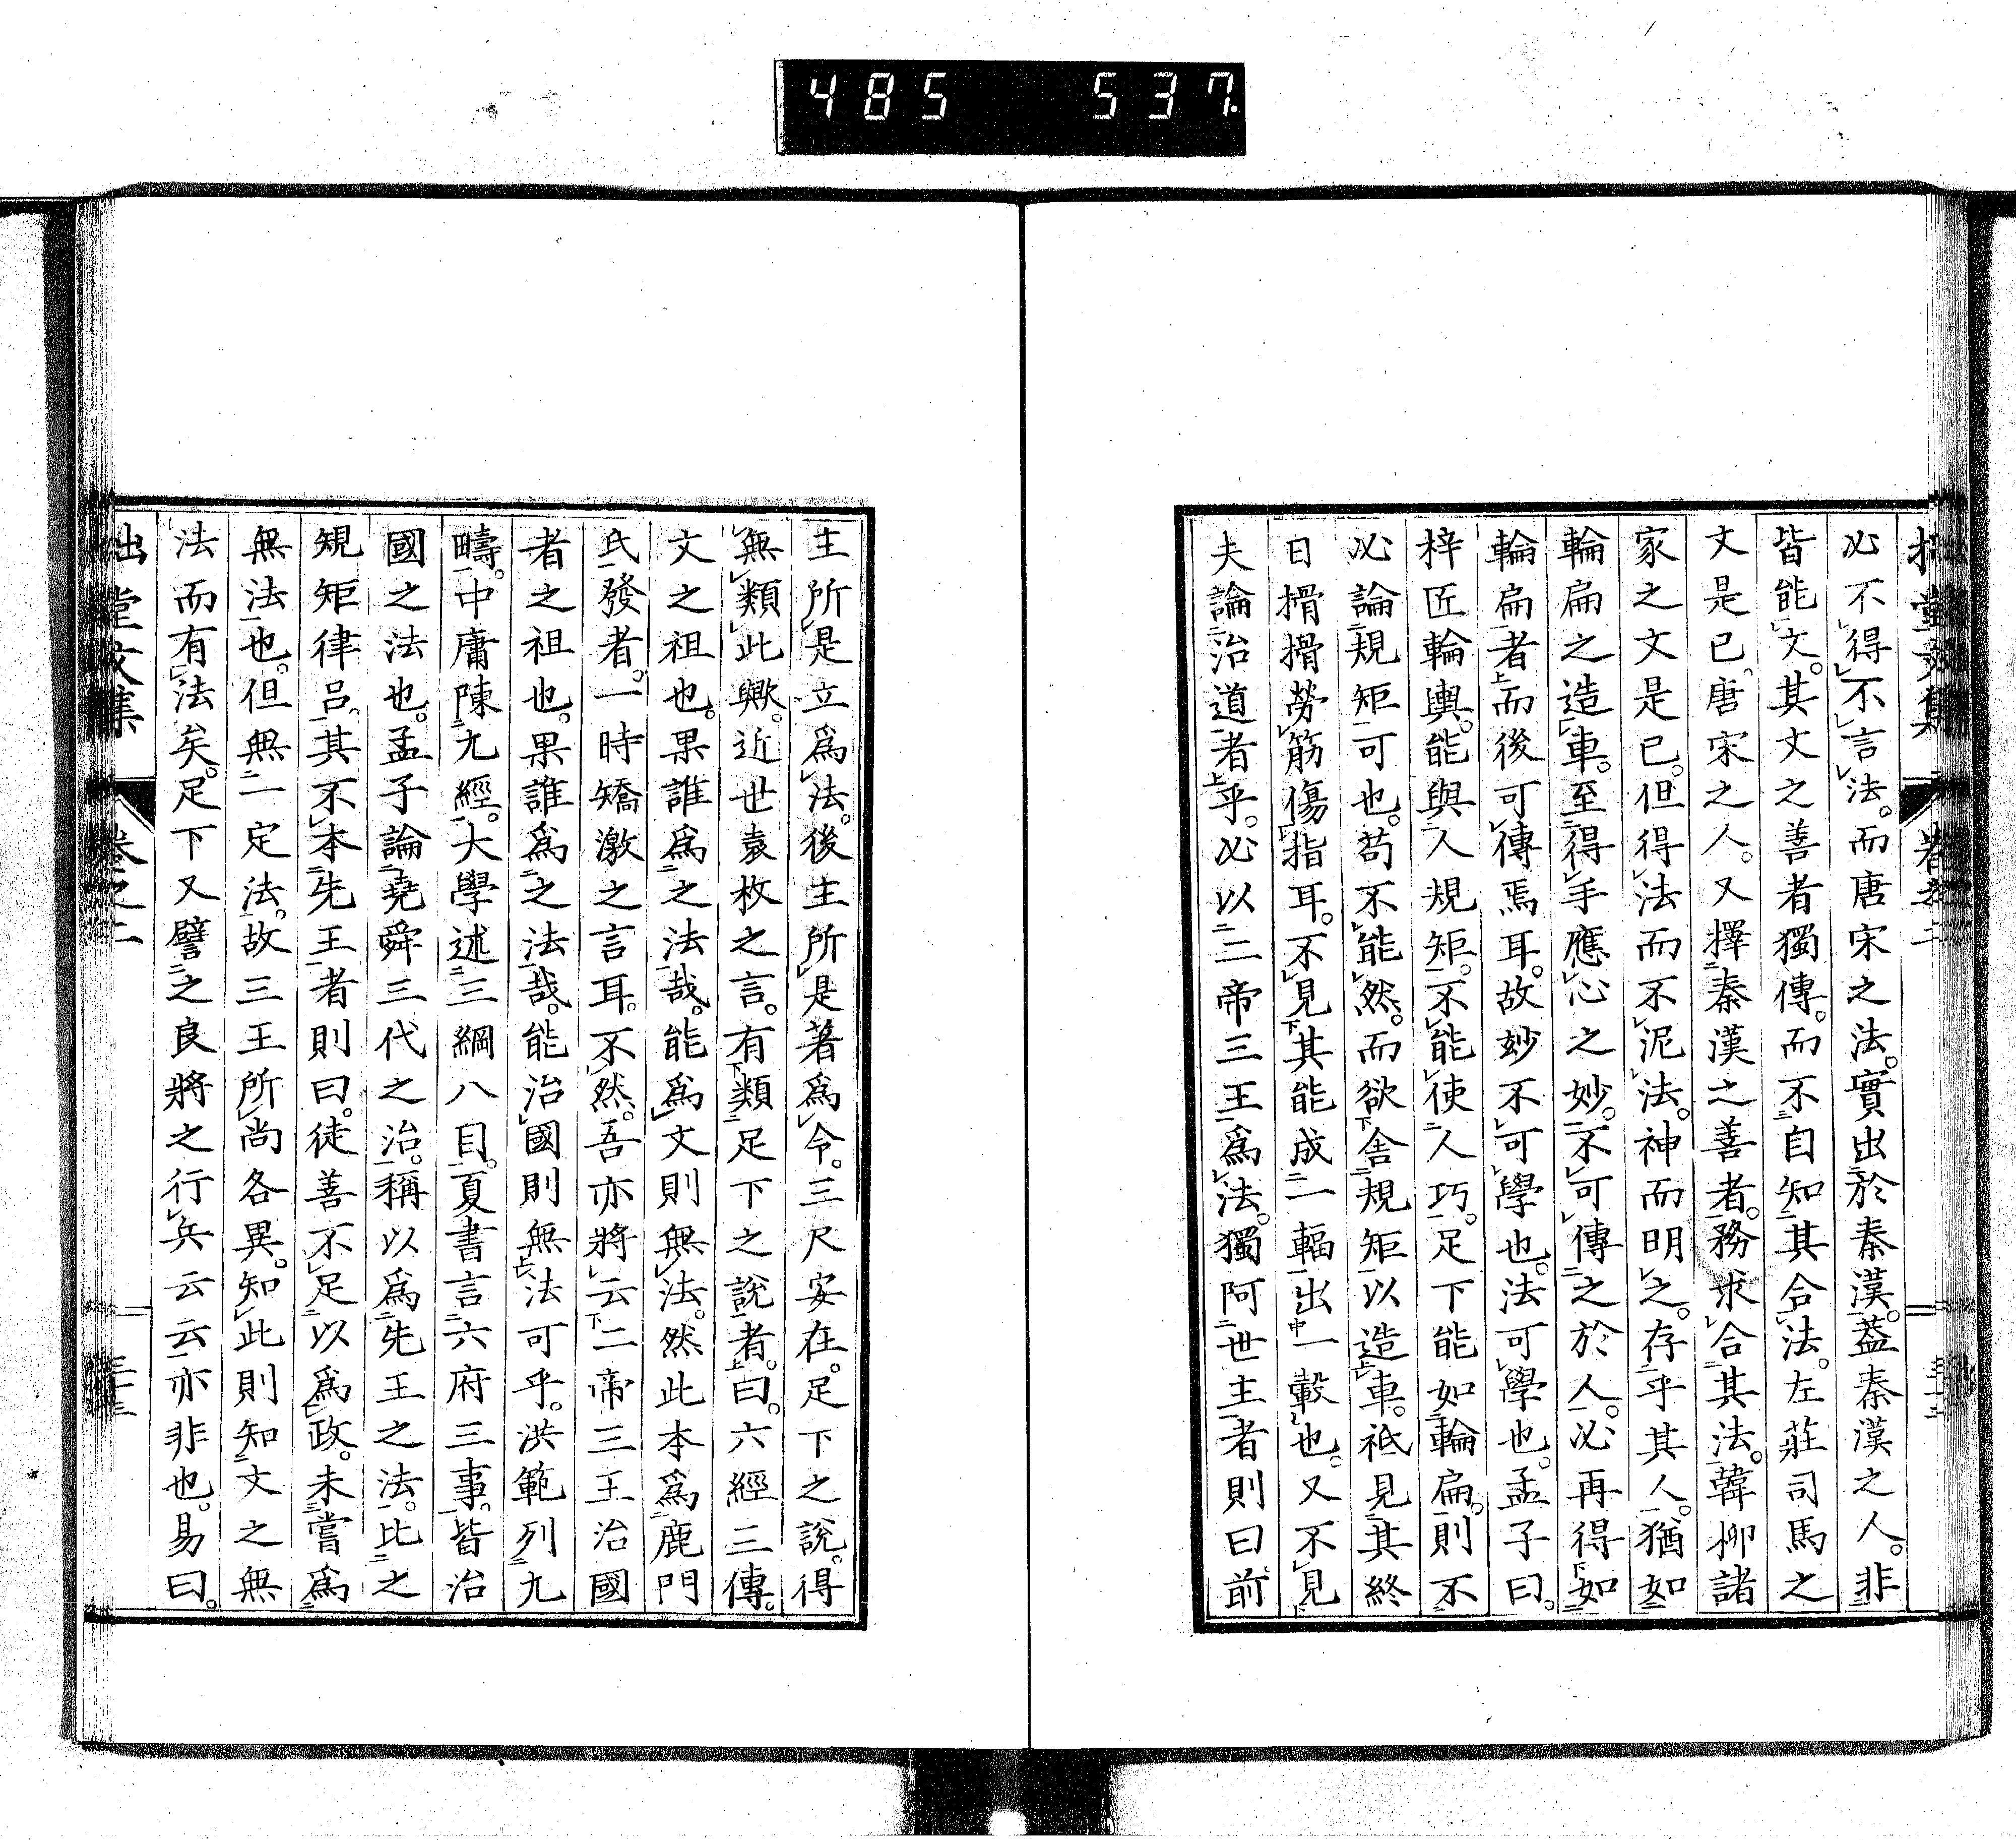 485 537
拙堂文集 卷之二
必不得不言法。而唐宋之法。實出於秦漢。葢秦漢之人。非
皆能文。其文之善者獨傳。而不自知其合法。左莊司馬之
文是已。唐宋之人。又擇秦漢之善者。務求合其法。韓柳諸
家之文是已。但得法而不泥法。神而明之。存乎其人。猶如
輪扁之造車。至得手應心之妙。不可傳之於人。必再得如
輪扁者而後可傳焉耳。故妙不可學也。法可學也。孟子曰。
梓匠輪輿。能與人規矩。不能使人巧。足下能如輪扁。則不
必論規矩可也。苟不能然。而欲舍規矩以造車。祗見其終
日搰搰勞筋傷指耳。不見其能成一輻出一轂也。又不見
夫論治道者乎。必以二帝三王爲法。獨阿世主者則曰。前
主所是立爲法。後主所是著爲令。三尺安在。足下之說。得
無類此歟。近世袁枚之言。有類足下之說者。曰。六經三傳。
文之祖也。果誰爲之法哉。能爲文則無法。然此本爲鹿門
氏發者。一時矯激之言耳。不然。吾亦將云二帝三王治國
者之祖也。果誰爲之法哉。能治國則無法可乎。洪範列九
疇。中庸陳九經。大學述三綱八目。夏書言六府三事。皆治
國之法也。孟子論堯舜三代之治。稱以爲先王之法。比之
規矩律呂。其不本先王者則曰。徒善不足以爲政。未嘗爲
無法也。但無一定法。故三王所尚各異。知此則知文之無
法而有法矣。足下又譬之良將之行兵云云亦非也。易曰。
拙堂文集 卷之二